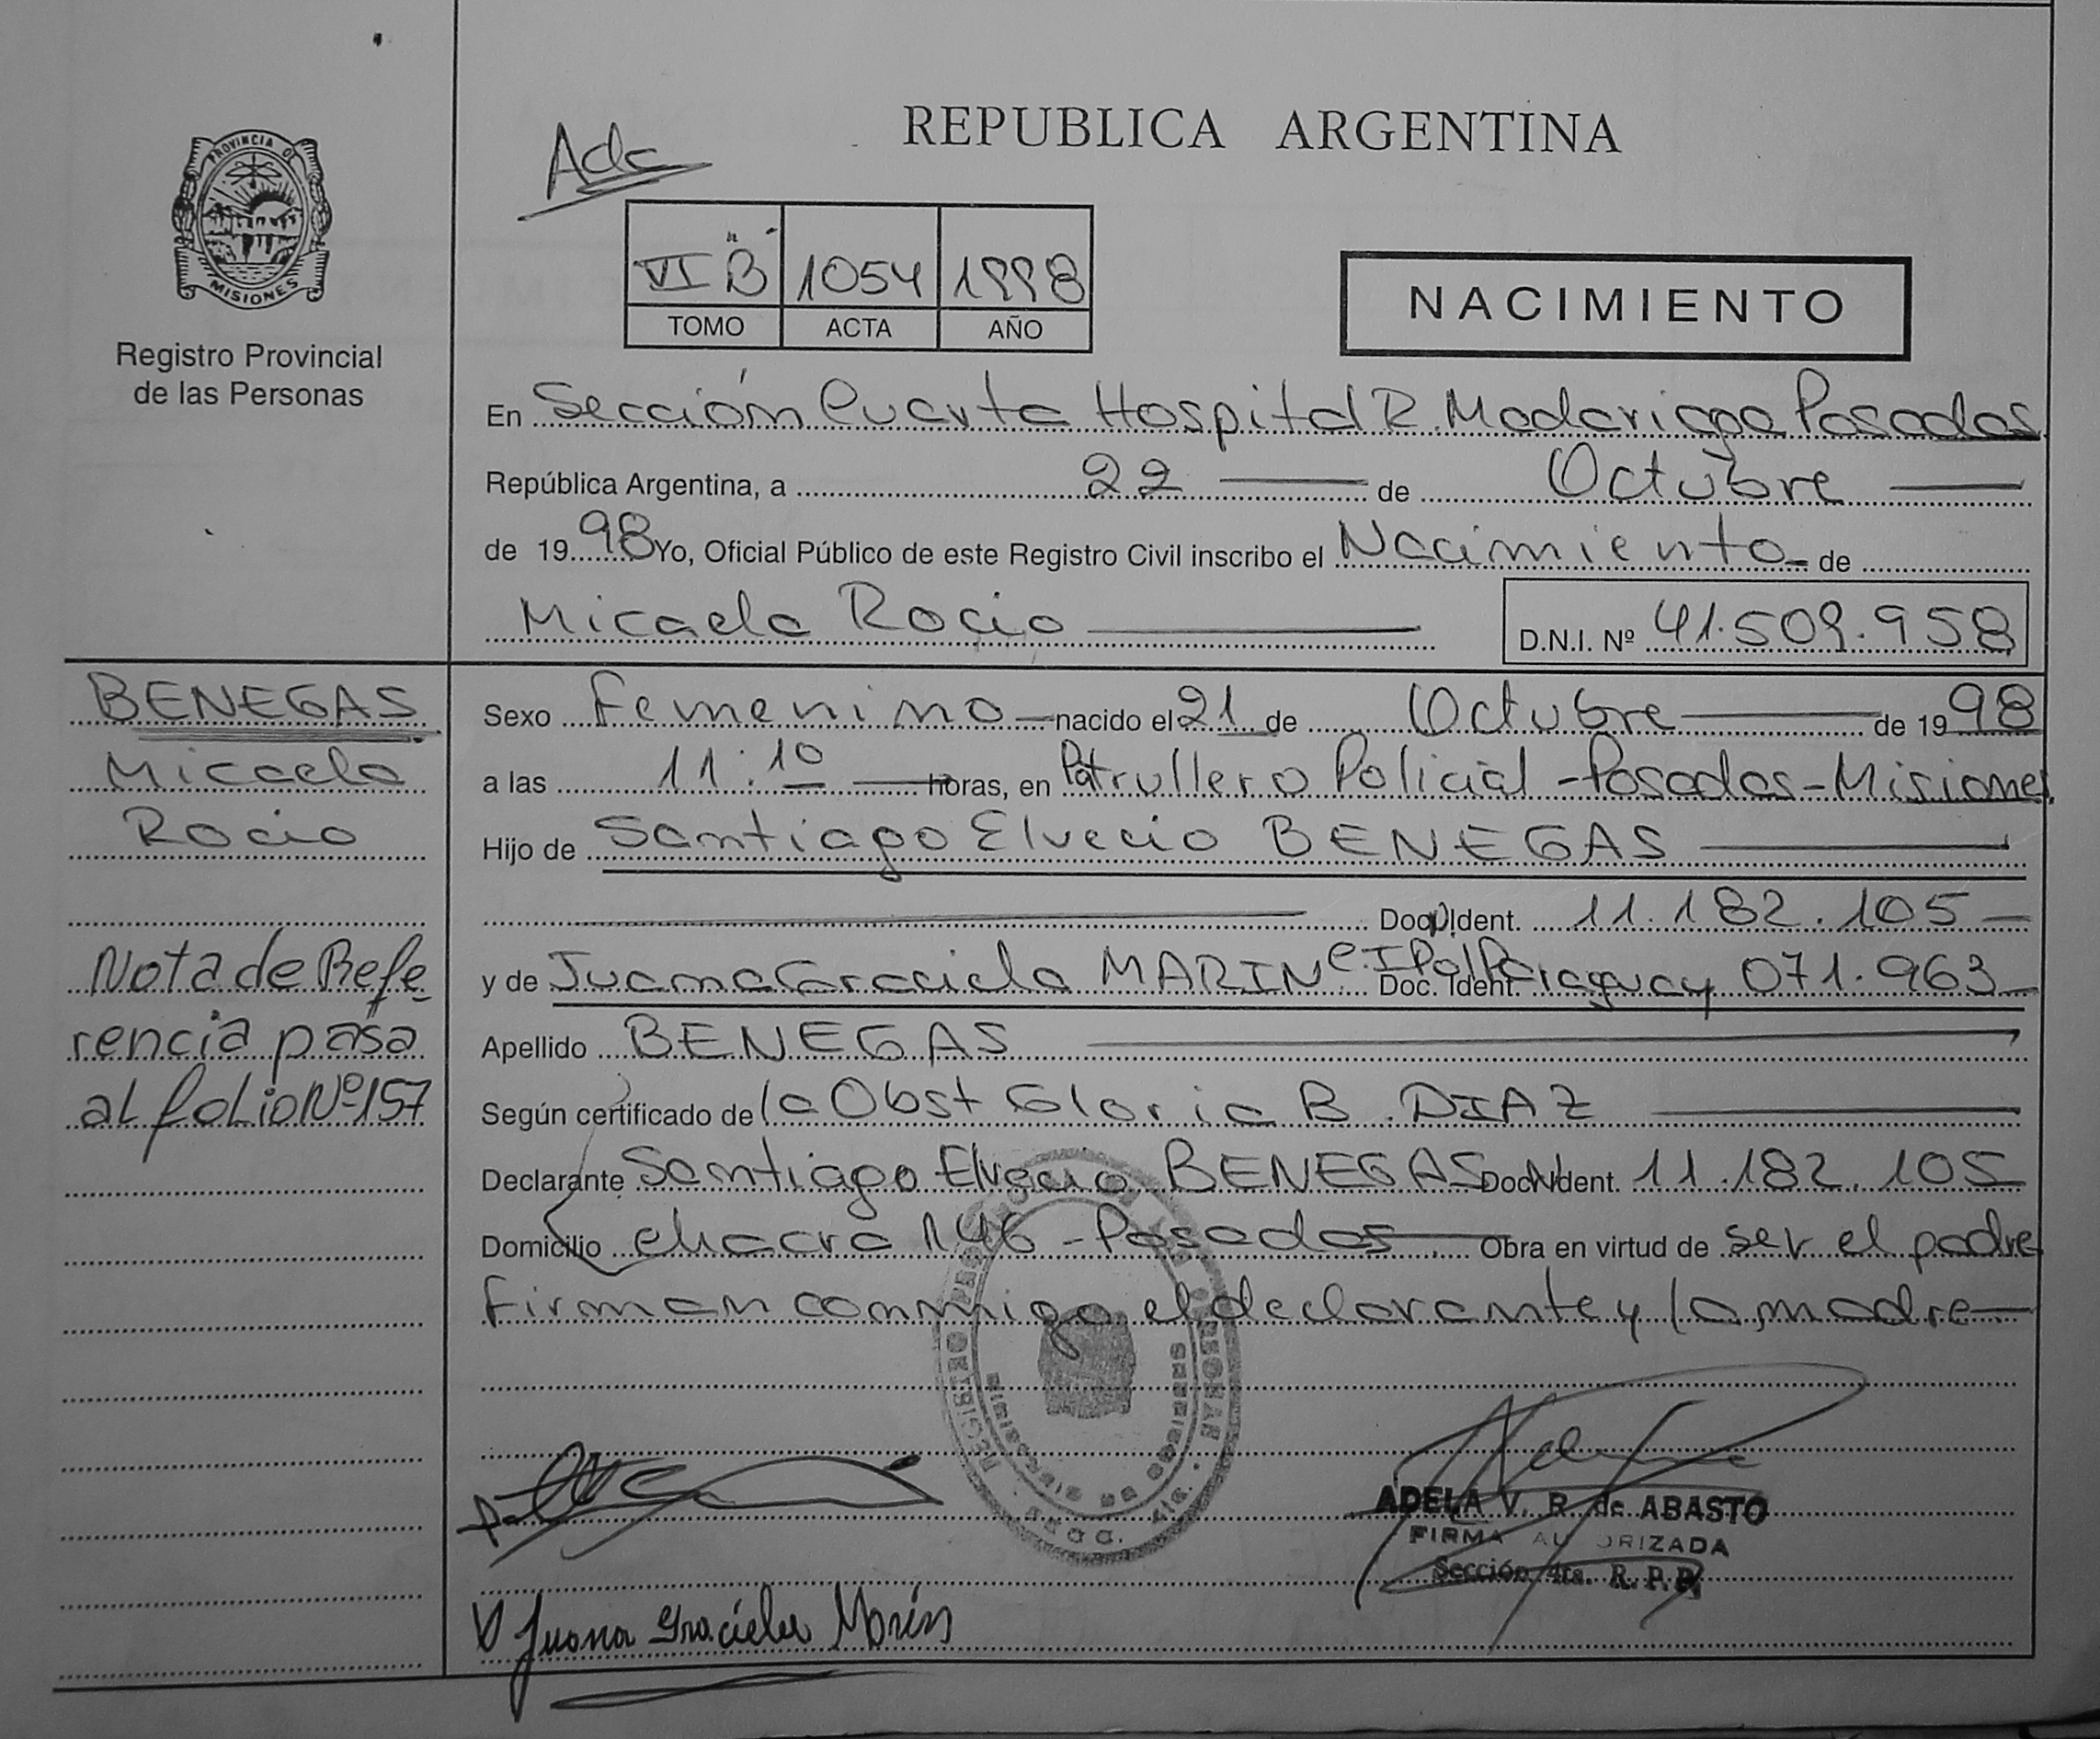 REPUBLICA ARGENTINA
PROVINCIA DE
MISIONES
Registro Provincial
de las Personas
VI "B" 1054 1998
TOMO ACTA AÑO
NACIMIENTO
En Sección Cuarta Hospital R. Madariaga Posadas
República Argentina, a 22 de Octubre
de 1998 Yo, Oficial Público de este Registro Civil inscribo el Nacimiento de
Micaela Rocio D.N.I. Nº 41.509.958
BENEGAS
Micaela
Rocio
Nota de Refe-
rencia pasa
al folio Nº 157
Sexo Femenino nacido el 21 de Octubre de 1998
a las 11:10 horas, en Patrullero Policial - Posadas - Misiones
Hijo de Santiago Elvecio BENEGAS
Doc. Ident. 11.182.105
y de Juana Graciela MARIN Doc. Ident. C.I Pol Paraguay 071.963
Apellido BENEGAS
Según certificado de la Obst Gloria B. DIAZ
Declarante Santiago Elvecio BENEGAS Doc. Ident. 11.182.105
Domicilio chacra 146 - Posadas Obra en virtud de ser el padre
firman conmigo el declarante y la madre
ADELA V. R. de ABASTO
FIRMA AUTORIZADA
Sección 4ta. R. P. P.
Juana Graciela Marin